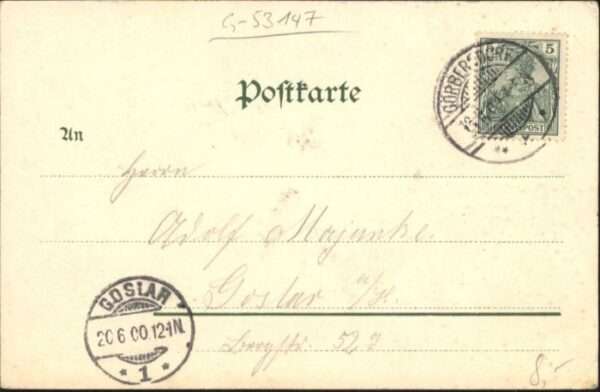 G-53147
5
GÖRBERSDORF
Postkarte
An
Herrn
Adolf
Goslar a/H.
GOSLAR
20 6 00. 12-1N.
* 1 *
Bergstr. 52 2
8.-